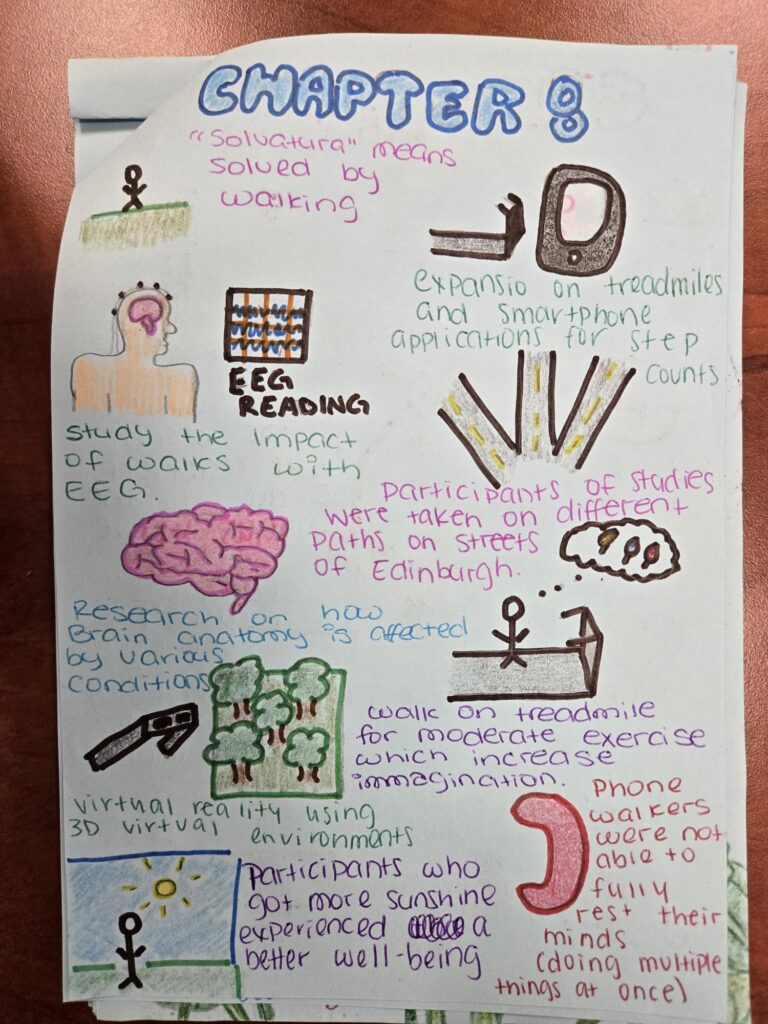 CHAPTER 8
"Solvatura" means
solved by
walking
expansio on treadmiles
and smartphone
applications for step
counts
EEG
READING
study the impact
of walks with
EEG.
Participants of studies
were taken on different
paths on streets
of Edinburgh.
Research on how
Brain anatomy is affected
by various
conditions
walk on treadmile
for moderate exercise
which increase
immagination.
virtual reality using
3D virtual environments
Phone
walkers
were not
able to
fully
rest their
minds
(doing multiple
things at once)
Participants who
got more sunshine
experienced a
better well-being